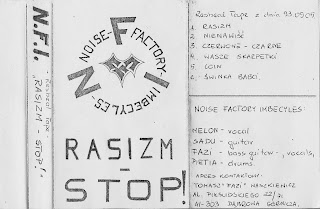 N.F.I.
- Reheat Tape -
"RASIZM - STOP!"
N F I
NOISE - FACTORY - IMBECYLES
RASIZM
-
STOP!
Tape z dnia 93.09.09
1. RASIZM
2. NIENAWIŚĆ
3. CZERWONE - CZARNE
4. WASZE SKARPETKI
5. LOIN
6. ŚWINKA BABCI.
NOISE FACTORY IMBECYLES:
NELON - vocal
SADU - guitar
FAZI - bass guitar, vocals,
PIETIA - drums
ADRES KONTAKTOWY:
TOMASZ "FAZI"
AL. PIŁSUDSKIEGO
41-303 DĄBROWA GÓRNICZA.